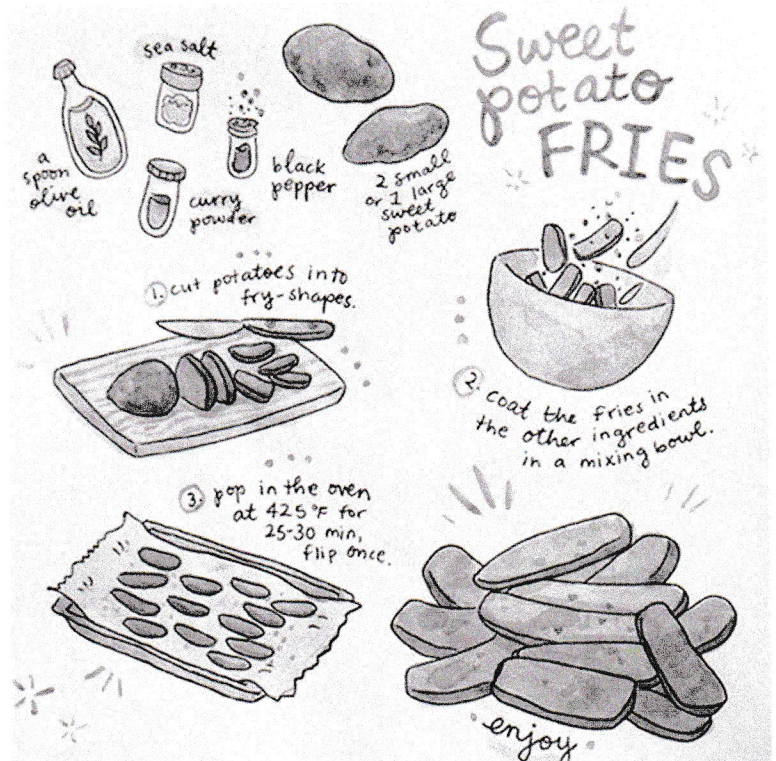 Sweet
potato
FRIES
a
spoon
olive
oil
sea salt
curry
powder
black
pepper
2 small
or 1 large
sweet
potato
1. cut potatoes into
fry-shapes.
2. coat the fries in
the other ingredients
in a mixing bowl.
3. pop in the oven
at 425°F for
25-30 min,
flip once.
enjoy